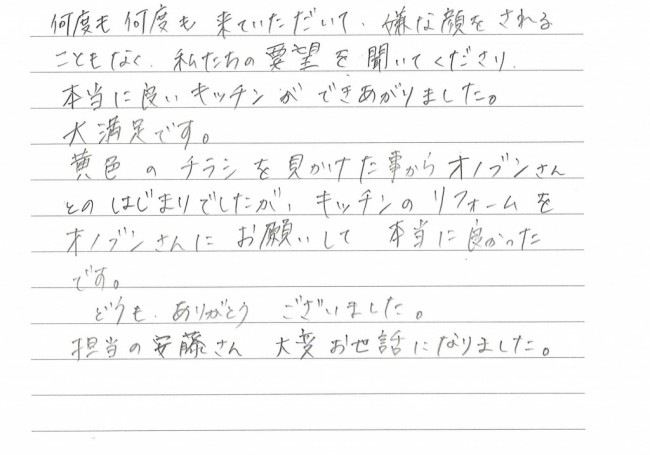 何度も何度も来ていただいて、嫌な顔をされる
こともなく、私たちの要望を聞いてくださり、
本当に良いキッチンができあがりました。
大満足です。
黄色のチラシを見かけた事からオノブンさん
とのはじまりでしたが、キッチンのリフォームを
オノブンさんにお願いして本当に良かった
です。
どうも、ありがとうございました。
担当の安藤さん 大変お世話になりました。